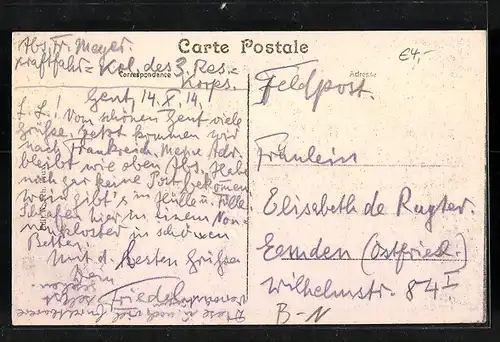 Carte Postale
€4,-
Abs. Fr. Meyer.
Kraftfahr= Kol. des 3. Res.=
Korps.
Correspondance
Adresse
Gent, 14. X. 14.
L. E.! Vom schönen Gent viele
Grüsse. Jetzt kommen wir
nach Frankreich. Meine Adr.
bleibt wie oben Abs. Habe
noch gar keine Post bekomen
Wein gibt's in Hülle u. Fülle.
Schlafen hier in einem Non-
nenkloster in schönen
Betten.
Mit d. besten Grüssen
Dein
Friedel
Feldpost.
Fräulein
Elisabeth de Ruyter.
Eemden (Ostfriesl.)
Wilhelmstr. 84 I
B-N